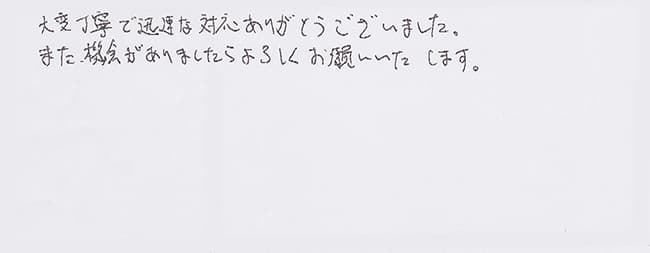 大変丁寧で迅速な対応ありがとうございました。
また機会がありましたらよろしくお願いいたします。